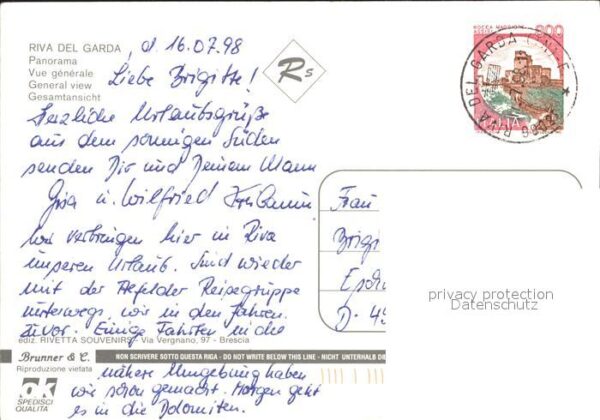 RIVA DEL GARDA
Panorama
Vue générale
General view
Gesamtansicht
d. 16.07.98
Liebe Brigitte!
Herzliche Urlaubsgrüße
aus dem sonnigen Süden
senden Dir und Deinem Mann
Gisa u. Wilfried
Wir verbringen hier in Riva
unseren Urlaub. Sind wieder
mit der Reisegruppe
unterwegs, wie in den Jahren
zuvor. Einige Fahrten in die
nähere Umgebung haben
wir schon gemacht. Morgen geht
es in die Dolomiten.
Rs
ROCCA MAGGIORE
800
ITALIA
RIVA DEL GARDA
Frau
Brigi
D-45
privacy protection
Datenschutz
ediz. RIVETTA SOUVENIRS - Via Vergnano, 97 - Brescia
Brunner & C.
Riproduzione vietata
NON SCRIVERE SOTTO QUESTA RIGA - DO NOT WRITE BELOW THIS LINE - NICHT UNTERHALB DIE
ok
SPEDISCI
QUALITA